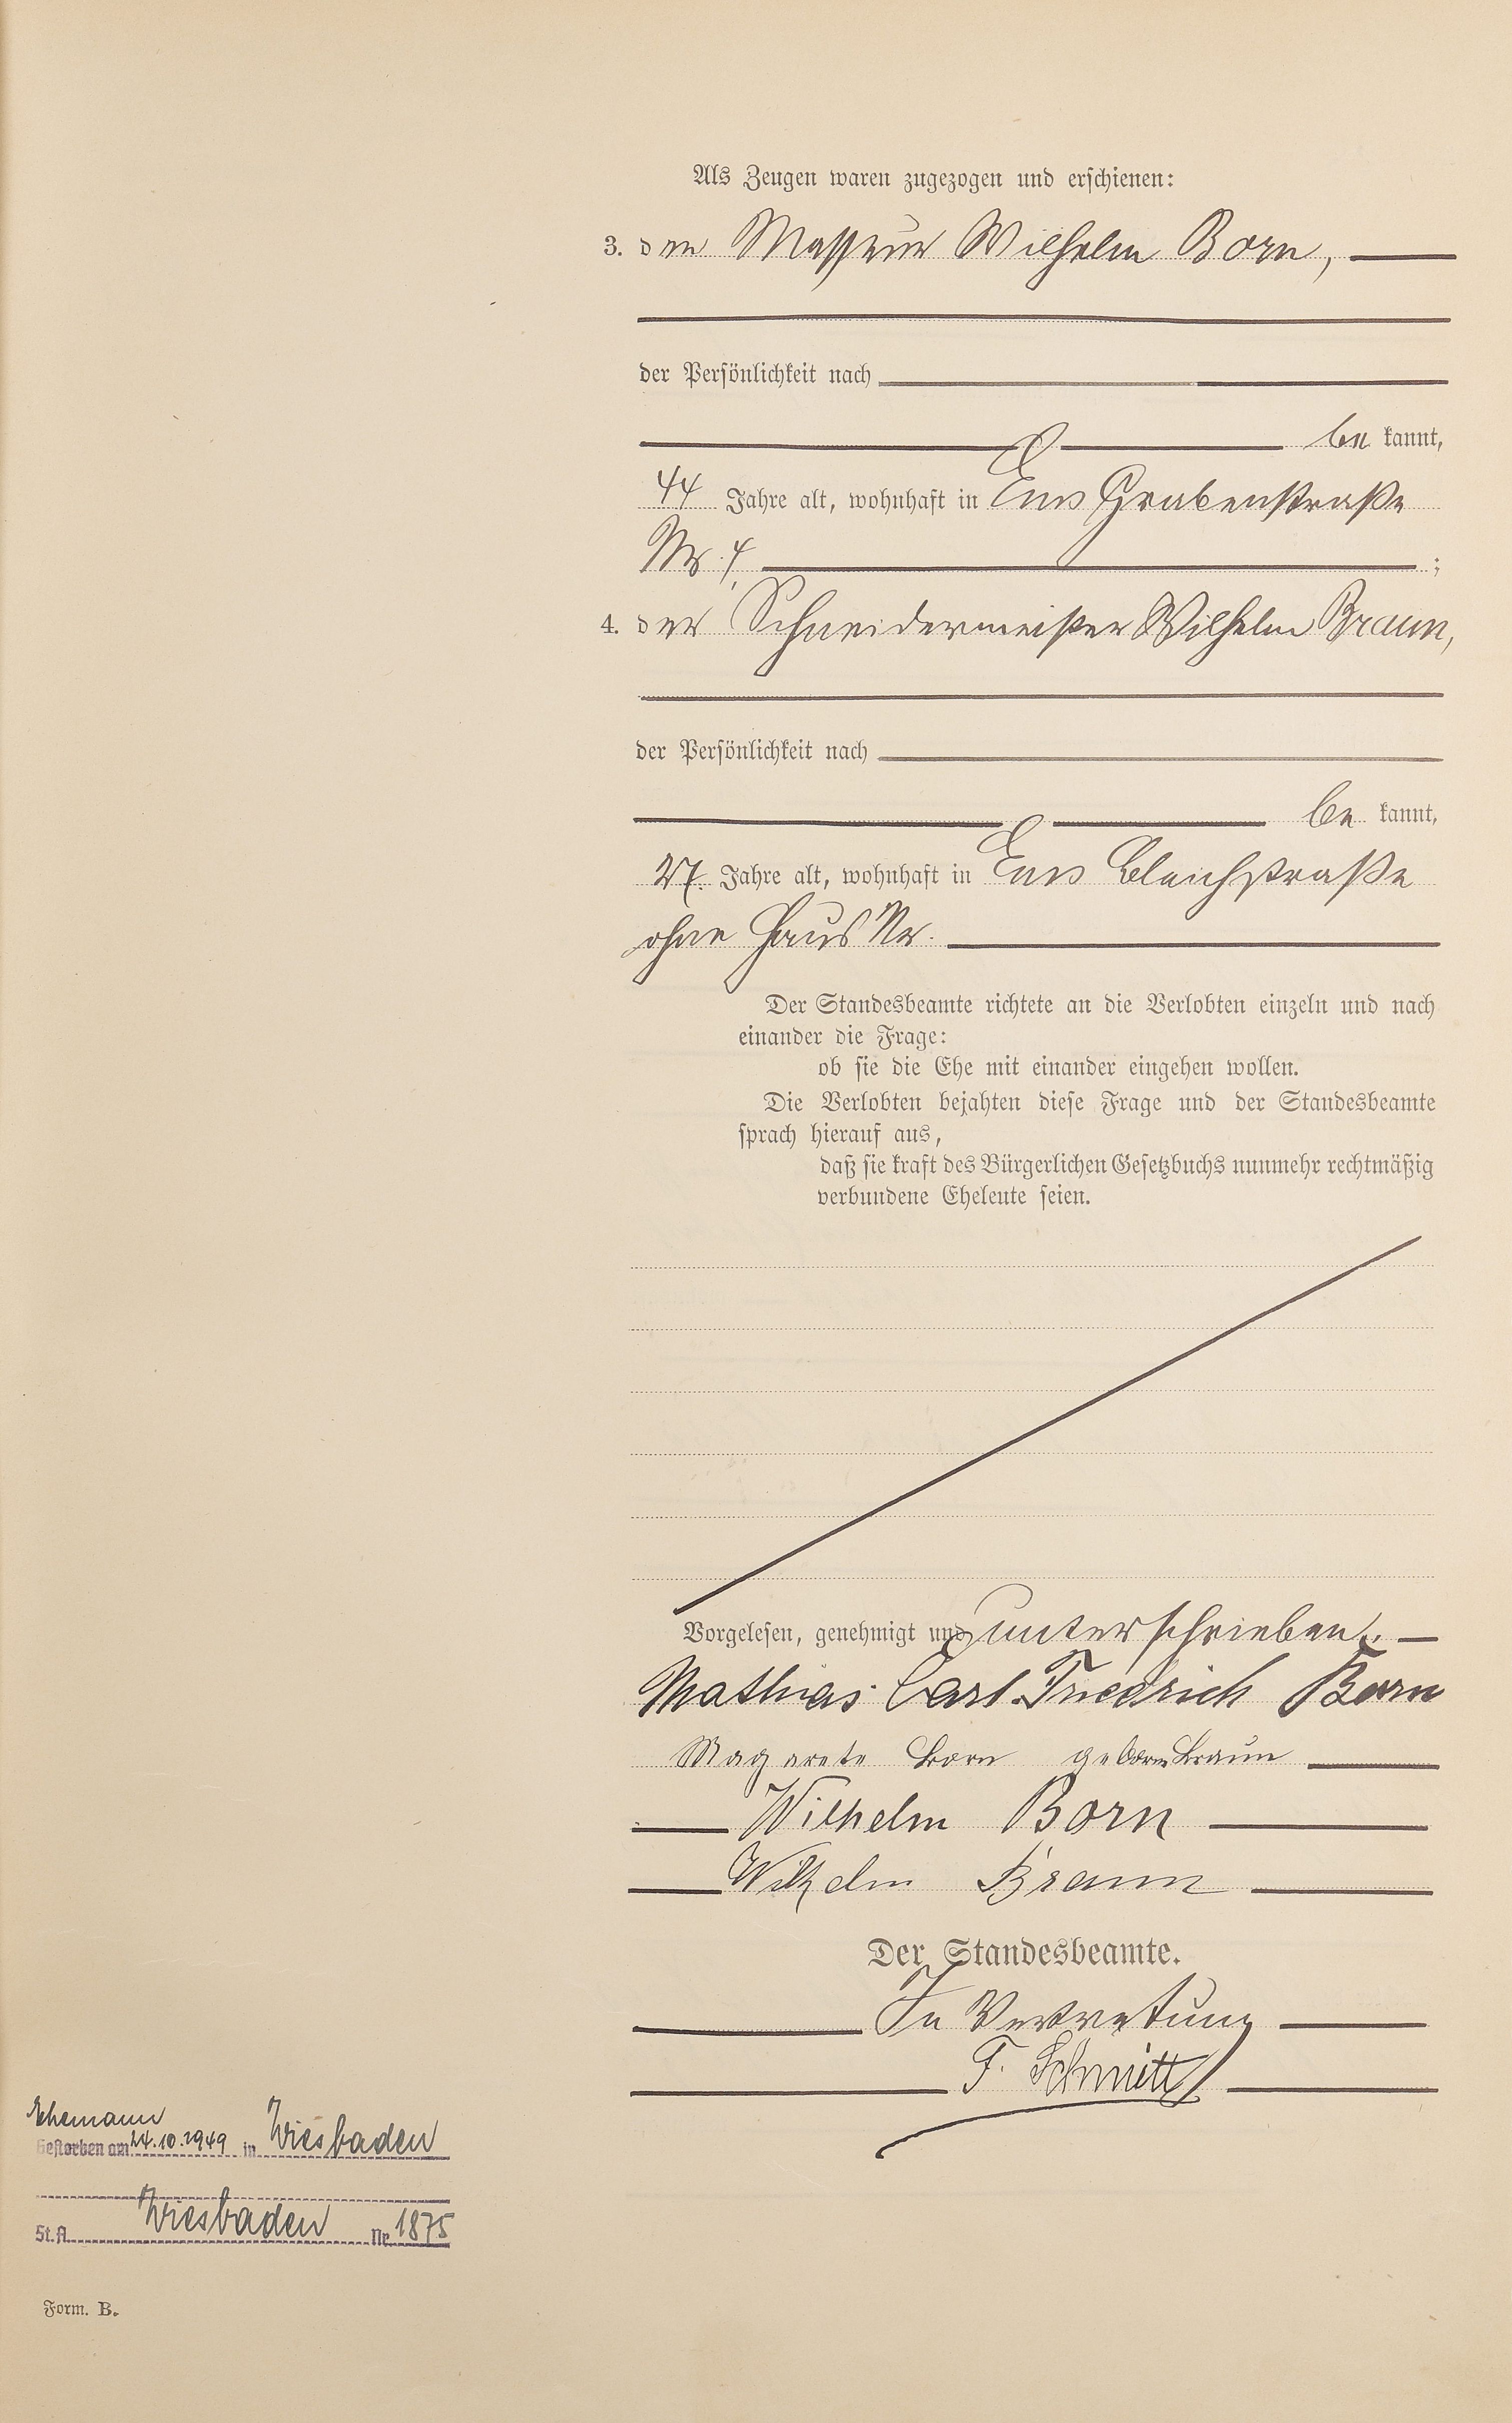 Als Zeugen waren zugezogen und erschienen:
3. der Masseur Wilhelm Born,
der Persönlichkeit nach
be kannt,
44 Jahre alt, wohnhaft in Ems Grabenstraße
Nr. 4 ;
4. der Schneidermeister Wilhelm Braun,
der Persönlichkeit nach
be kannt,
27 Jahre alt, wohnhaft in Ems Bleichstraße
ohne Haus Nr.
Der Standesbeamte richtete an die Verlobten einzeln und nach
einander die Frage:
ob sie die Ehe mit einander eingehen wollen.
Die Verlobten bejahten diese Frage und der Standesbeamte
sprach hierauf aus,
daß sie kraft des Bürgerlichen Gesetzbuchs nunmehr rechtmäßig
verbundene Eheleute seien.
Vorgelesen, genehmigt und unterschrieben.
Mathias Carl Friedrich Born
Magarete Born geborn Braun
Wilhelm Born
Wilhelm Braun
Der Standesbeamte.
In Vertretung
F. Schmitt
Ehemann
Gestorben am 24.10.1949 in Wiesbaden
St. A. Wiesbaden Nr. 1875
Form. B.